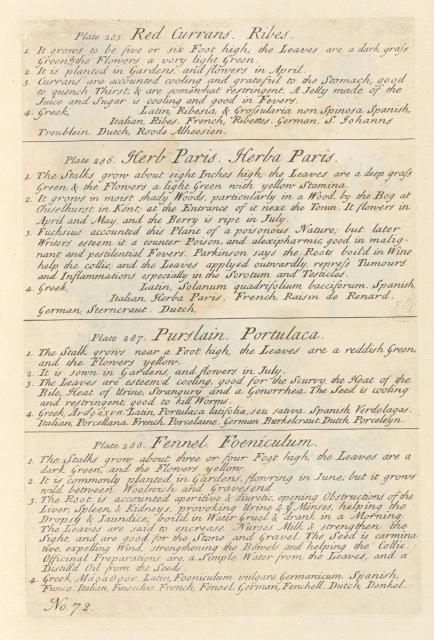 Plate 285. Red Currans. Ribes.
1. It grows to be five or six Foot high; the Leaves are a dark grass
Green & the Flowers a very light Green.
2. It is planted in Gardens, and flowers in April.
3. Currans are accounted cooling and grateful to the Stomach, good
to quench Thirst, & are somewhat restringent. A Jelly made of the
Juice and Sugar is cooling and good in Fevers.
4. Greek, Latin, Ribesia, & Grossularia non Spinosa. Spanish,
Italian, Ribes. French, Ribettes. German, S. Johanns
Treublein. Dutch, Roode Albeesien.
Plate 286. Herb Paris. Herba Paris.
1. The Stalks grow about eight Inches high; the Leaves are a deep grass
Green, & the Flowers a light Green with yellow Stamina.
2. It grows in moist shady Woods, particularly in a Wood, by the Bog at
Chiselhurst in Kent, at the Entrance of it next the Town. It flowers in
April and May, and the Berry is ripe in July.
3. Fuchsius accounted this Plant of a poisonous Nature; but later
Writers esteem it a counter Poison, and alexipharmic, good in malig-
nant and pestilential Fevers. Parkinson says the Roots boild in Wine
help the collic, and the Leaves applyed outwardly, repress Tumours
and Inflammations especially in the Scrotum and Testicles.
4. Greek, Latin, Solanum quadrifolium bacciferum. Spanish,
Italian, Herba Paris. French, Raisin de Renard.
German, Sterncraut. Dutch,
Plate 287. Purslain. Portulaca.
1. The Stalk grows near a Foot high, the Leaves are a reddish Green,
and the Flowers yellow.
2. It is sown in Gardens, and flowers in July.
3. The Leaves are esteem'd cooling, good for the Scurvy, the Heat of the
Bile, Heat of Urine, Strangury and a Gonorrhea. The Seed is cooling
and restringent, good to kill Worms.
4. Greek, Latin, Portulaca latifolia, seu sativa. Spanish, Verdolagas.
Italian, Porcellana. French, Porcelaine. German, Burkelcraut. Dutch, Porceleyn.
Plate 288. Fennel. Foeniculum.
1. The Stalks grow about three or four Foot high, the Leaves are a
dark Green, and the Flowers yellow.
2. It is commonly planted in Gardens, flowring in June; but it grows
wild between Woolwich and Gravesend.
3. The Root is accounted aperitive & diuretic, opening Obstructions of the
Liver, Spleen & Kidneys, provoking Urine & ye Menses, helping the
Dropsy & Jaundice, boild in Water Gruel & drank in a Morning.
The Leaves are said to encrease Nurses Milk & strengthen the
Sight, and are good for the Stone and Gravel. The Seed is carmina
tive, expelling Wind, strengthening the Bowels and helping the Collic.
Officinal Preparations are, a Simple Water from the Leaves, and a
Distill'd Oil from the Seeds.
4. Greek, Latin, Foeniculum vulgare Germanicum. Spanish,
Funco. Italian, Finochio. French, Fenoel. German, Fenchell. Dutch, Denkel.
No. 72.